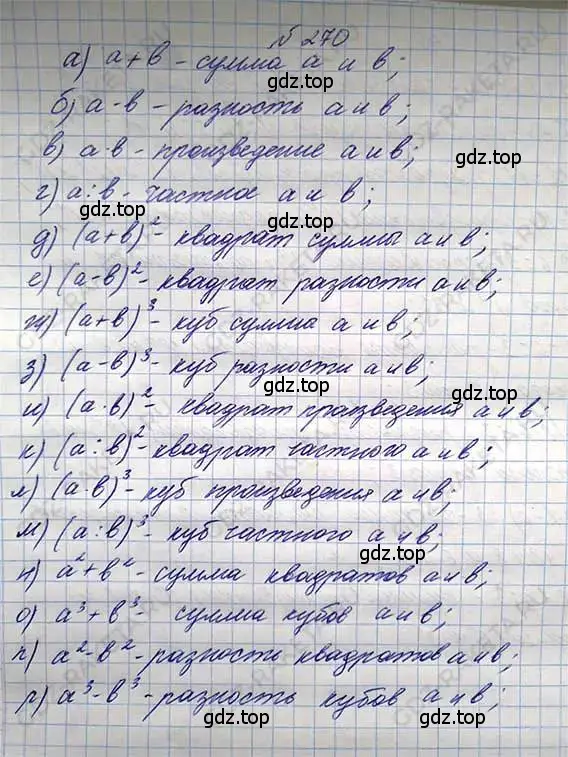 № 270
а) а+в - сумма а и в;
б) а-в - разность а и в;
в) а·в - произведение а и в;
г) а:в - частное а и в;
д) (а+в)² - квадрат суммы а и в;
е) (а-в)² - квадрат разности а и в;
ж) (а+в)³ - куб сумма а и в;
з) (а-в)³ - куб разности а и в;
и) (а·в)² - квадрат произведения а и в;
к) (а:в)² - квадрат частного а и в;
л) (а·в)³ - куб произведения а и в;
м) (а:в)³ - куб частного а и в;
н) а²+в² - сумма квадратов а и в;
о) а³+в³ - сумма кубов а и в;
п) а²-в² - разность квадратов а и в;
р) а³-в³ - разность кубов а и в;
gdz.top
gdz.top
gdz.top
gdz.top
gdz.top
gdz.top
gdz.top
gdz.top
gdz.top
gdz.top
gdz.top
gdz.top
gdz.top
gdz.top